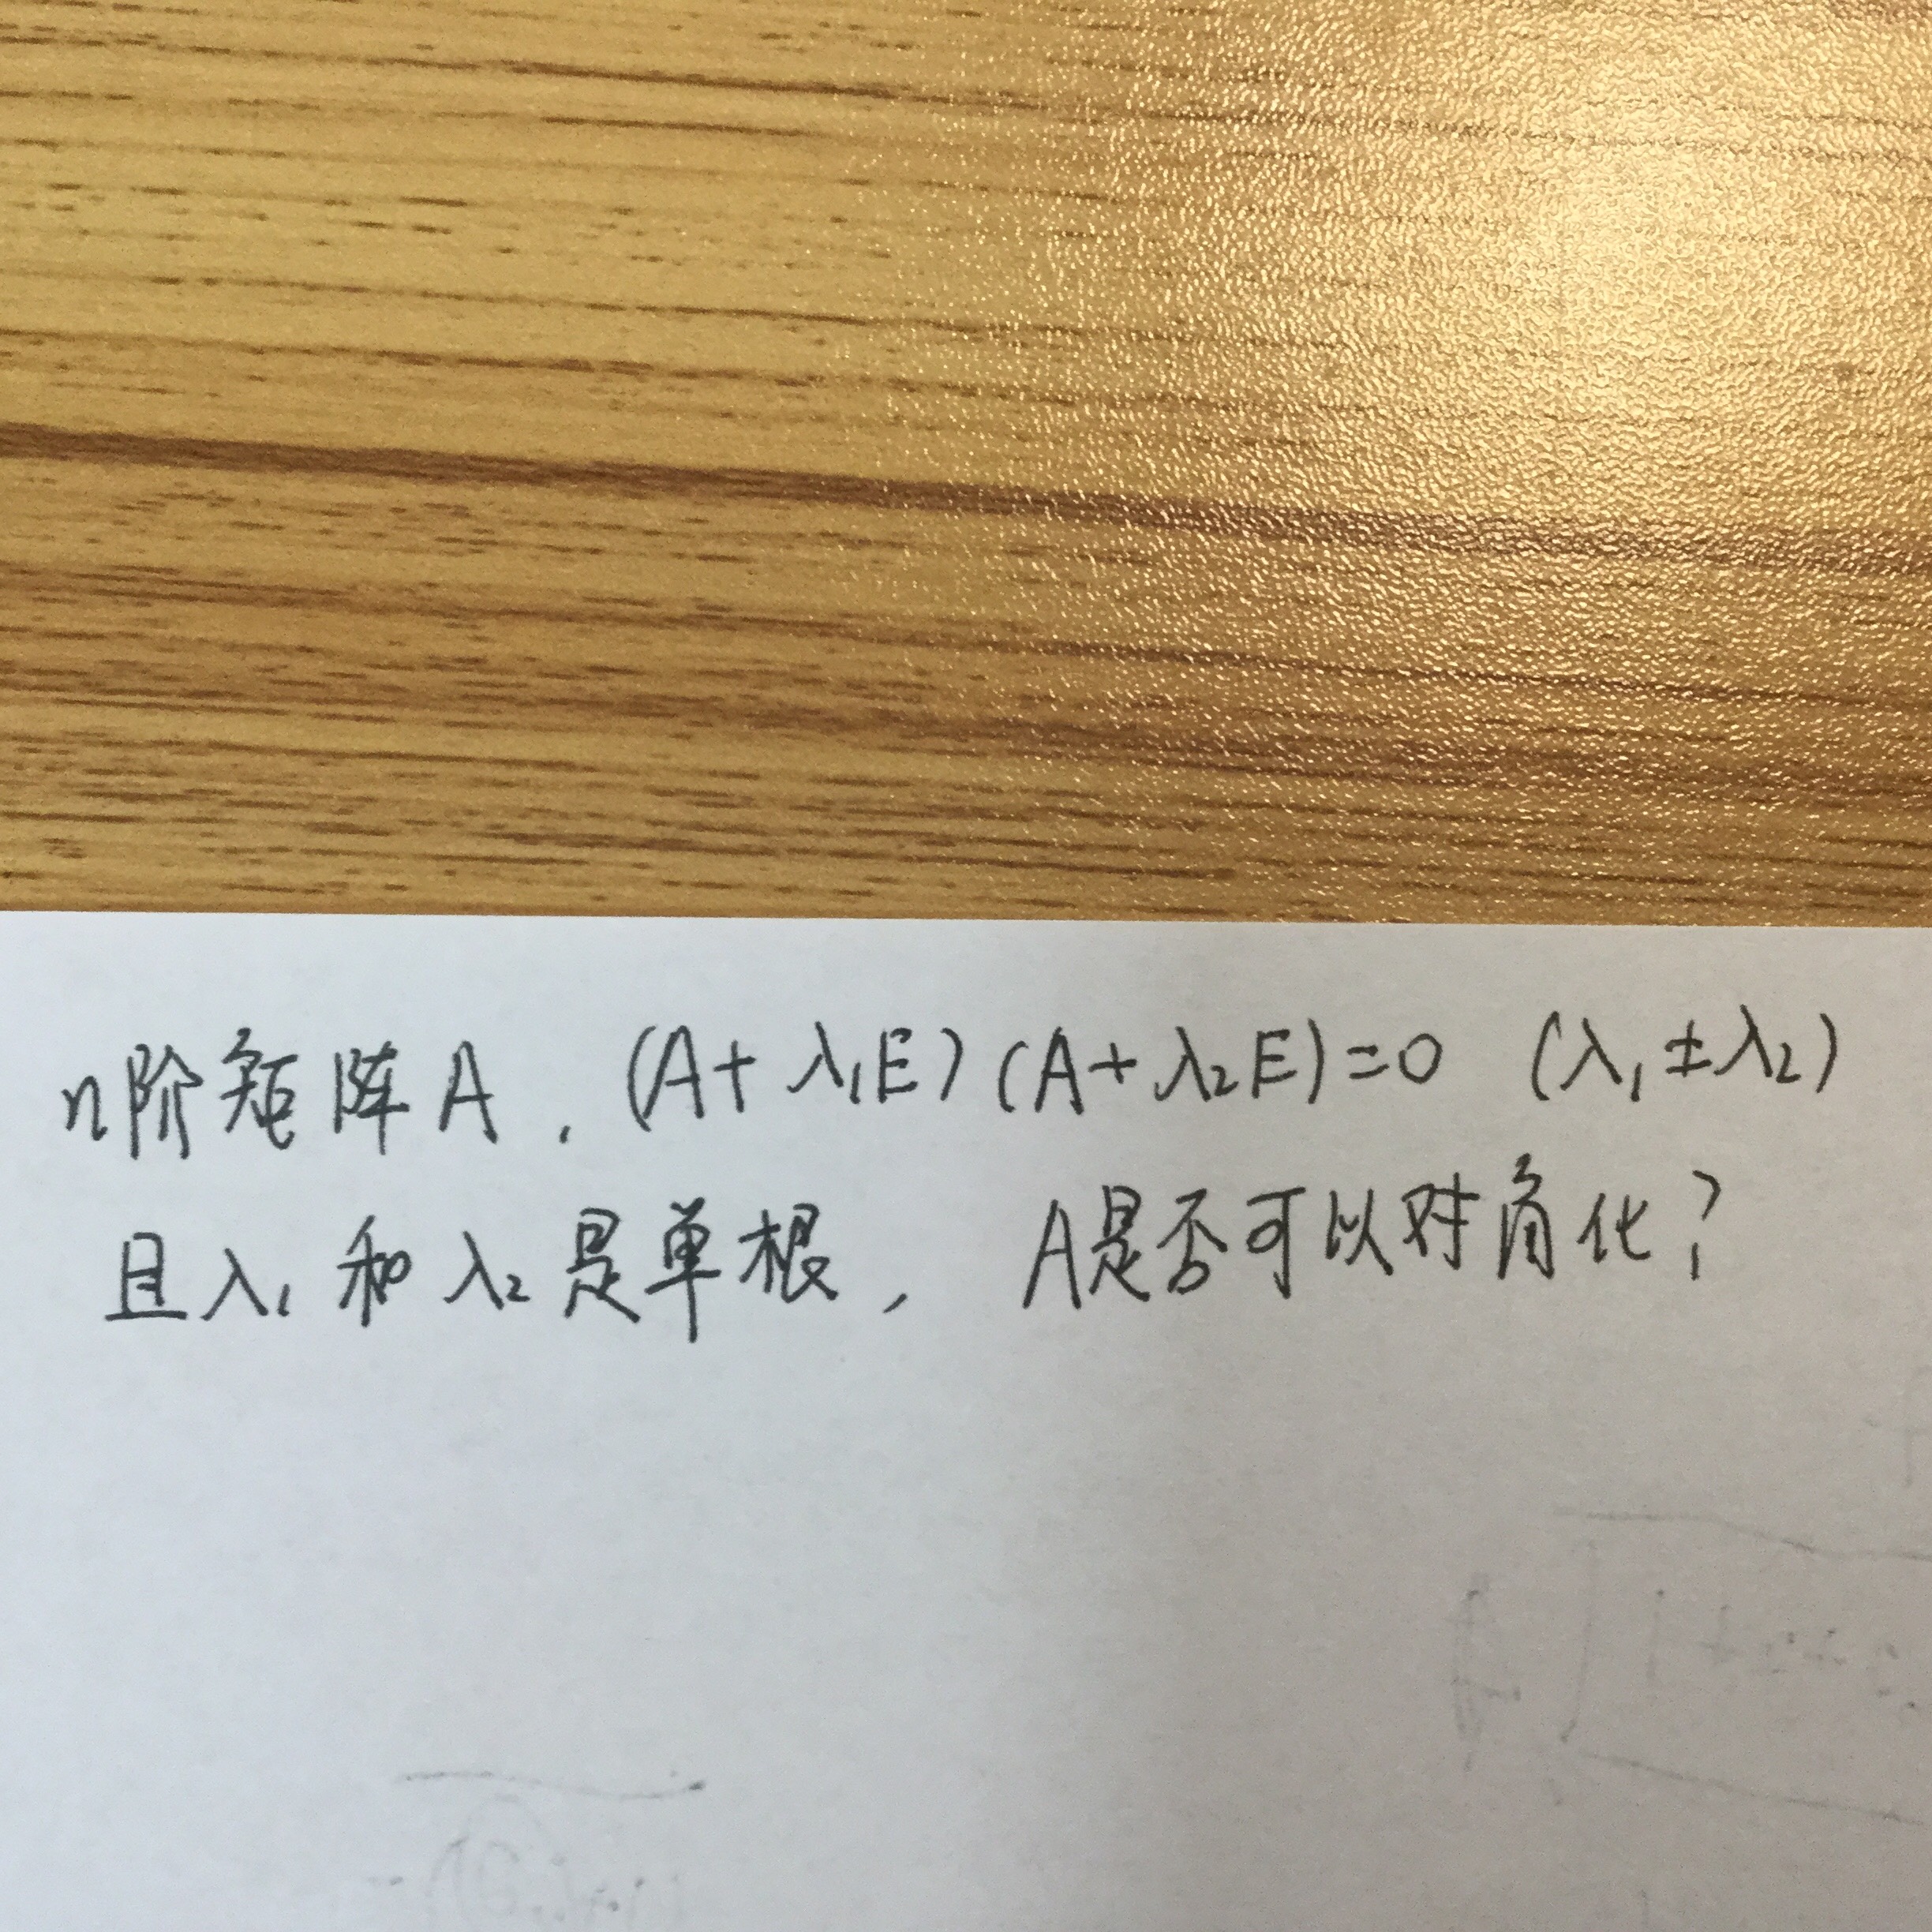 n阶矩阵A. (A+λ₁E)(A+λ₂E)=0 (λ₁≠λ₂)
且λ₁和λ₂是单根, A是否可以对角化?